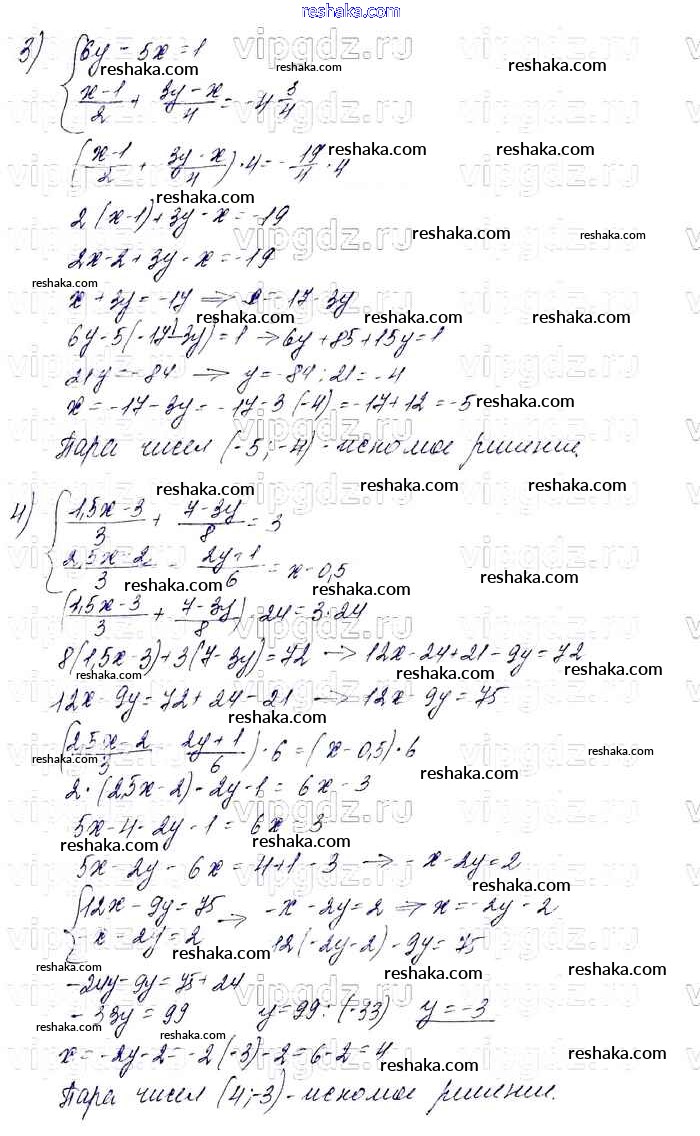 reshaka.com
3) { 6y - 5x = 1
(x-1)/2 + (3y-x)/4 = -4 3/4
((x-1)/2 + (3y-x)/4)·4 = -19/4·4
2(x-1)+3y-x=-19
2x-2+3y-x=-19
x+3y=-17 => x=-17-3y
6y-5(-17-3y)=1 → 6y+85+15y=1
21y=-84 → y=-84:21=-4
x=-17-3y=-17-3(-4)=-17+12=-5
Пара чисел (-5;-4)-искомое решение.
4) { (1,5x-3)/3 + (7-3y)/8 = 3
(2,5x-2)/3 - (2y+1)/6 = x-0,5
((1,5x-3)/3 + (7-3y)/8)·24=3·24
8(1,5x-3)+3(7-3y)=72 → 12x-24+21-9y=72
12x-9y=72+24-21 → 12x-9y=75
((2,5x-2)/3 - (2y+1)/6)·6=(x-0,5)·6
2·(2,5x-2)-2y-1=6x-3
5x-4-2y-1=6x-3
5x-2y-6x=4+1-3 → -x-2y=2
{ 12x-9y=75 → -x-2y=2 => x=-2y-2
-x-2y=2 12(-2y-2)-9y=75
-24y-9y=75+24
-33y=99 y=99:(-33) y=-3
x=-2y-2=-2(-3)-2=6-2=4
Пара чисел (4;-3)-искомое решение.